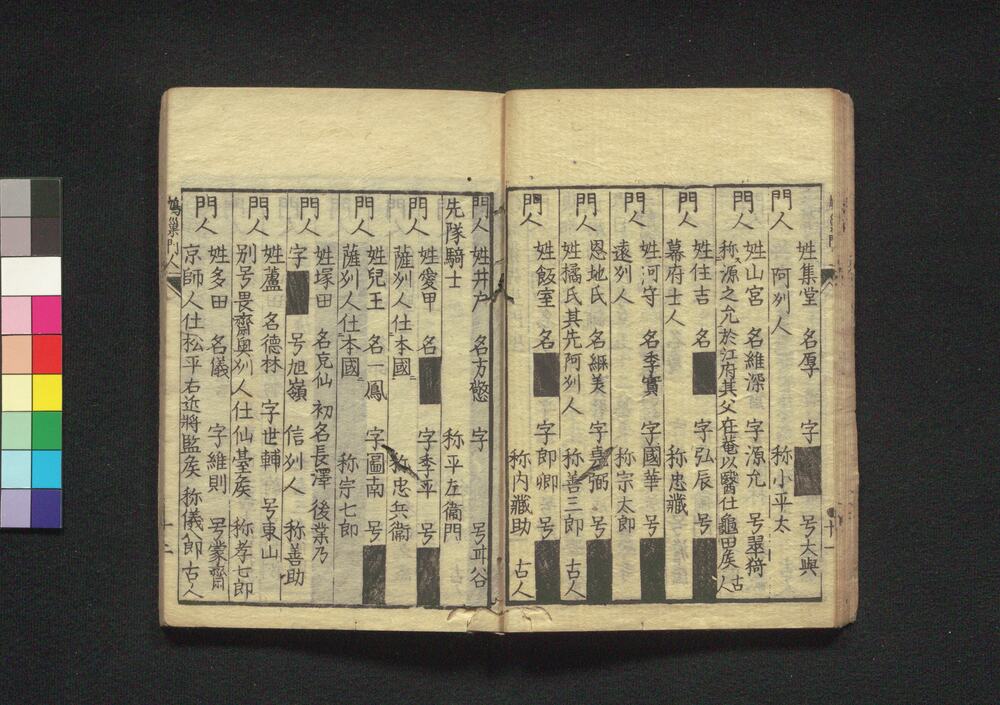 門人
姓集堂 名厚 字■ 号大與
阿刕人 称小平太
門人
姓山宮 名維深 字源允 号翠猗
称源之允於江府其父在菴以醫仕龜田矦 古人
門人
姓住吉 名■ 字弘辰 号■
幕府士人 称忠藏
門人
姓河守 名季實 字國華 号■
遠刕人 称宗太郎
門人
恩地氏 名綵美 字嘉弼 号■
姓橘氏其先阿刕人 称善三郎 古人
門人
姓飯室 名■ 字即卿 号■
称内藏助 古人
門人
姓井戸 名方慤 字 号丱谷
先隊騎士 称平左衞門
門人
姓愛甲 名■ 字季平 号■
薩刕人仕本國 称忠兵衞
門人
姓兒王 名一鳳 字圖南 号■
薩刕人仕本國 称宗七郎
門人
姓塚田 名克仙 初名長澤 後業乃
字■ 号旭嶺 信刕人 称善助
門人
姓蘆 名德林 字世輔 号東山
別号畏齋奥刕人仕仙臺矦 称孝七郎
門人
姓多田 名儀 字維則 号蒙齋
京師人仕松平右近將監矦 称儀八郎 古人
鳩巢門人
十二
十一